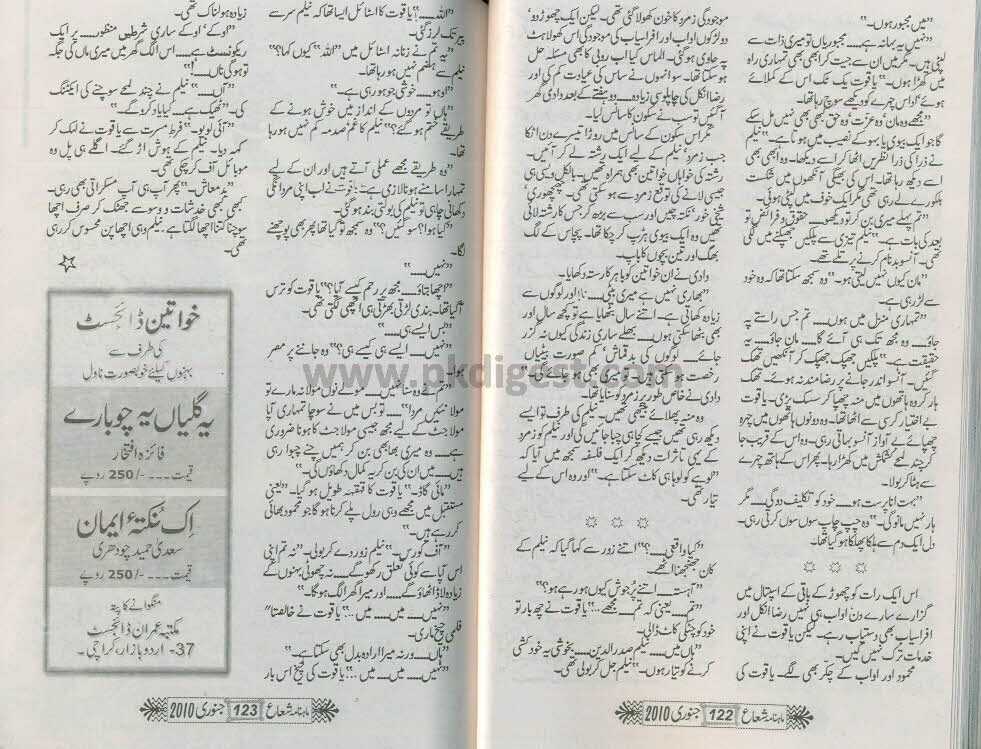 "میں مجبور ہوں۔"
"نہیں یہ بہانہ ہے۔۔۔۔ مجبوریاں تو میری ذات سے
لپٹی ہیں۔ مگر میں ان سے جیت کر ابھی بھی تمہاری راہ
میں کھڑا ہوں۔" یاقوت یک ٹک اس کے کملائے
ہوئے' اداس چہرے کو دیکھے سوچ رہا تھا۔
"مجھے وہ مان' وہ عزت وہ حق کبھی بھی نہیں مل سکے
گا جو ایک بیوی یا بہو کے نصیب میں ہوتا ہے" نیلم
نے ذرا کی ذرا نظریں اٹھا کر اسے دیکھا۔ وہ ابھی بھی
اسے دیکھ رہا تھا۔ اس کی بھیگی آنکھوں میں شکست
ہلکورے لے رہی تھی مگر ایک خوف میں لپٹی ہوئی۔
"تم پہلے میری بن کر تو دیکھو۔۔۔۔ حقوق و فرائض تو
بعد کی بات ہے۔" نیلم تیزی سے پلکیں جھپکنے میں لگی
تھی۔ آنسو بدنام کرنے پر تلے تھے۔
"مان کیوں نہیں لیتی ہو۔" وہ سمجھ سکتا تھا کہ وہ خود
سے لڑ رہی ہے۔
"تمہاری منزل میں ہوں۔۔۔۔ تم جس راستے پہ
جاؤ۔ وہ مجھ تک ہی آئے گا۔۔۔۔ مان جاؤ۔۔۔۔ یہ
حقیقت ہے۔" پلکیں جھپک جھپک کر آنکھیں تھک
گئیں۔ آنسو اندر جانے پر رضامند نہ ہوئے۔ تھک
ہار کر وہ ہاتھوں میں منہ چھپا کر سسک پڑی۔ یاقوت
بے اختیار کرسی سے اٹھا تھا۔ وہ دونوں ہاتھوں میں چہرہ
چھپائے بے آواز آنسو بہاتی رہی۔ وہ اس کے قریب جا
کر چند لمحے کشمکش میں کھڑا رہا۔ پھر اس کے ہاتھ چہرے
سے ہٹا کر بولا۔
"بہت انا پرست ہو۔۔۔۔ خود کو تکلیف دو گی۔۔۔۔ مگر
ہار نہیں مانو گی۔" وہ چپ چاپ سوں سوں کرتی رہی۔
دل ایک دم سے ہلکا پھلکا ہو گیا تھا۔
اس ایک رات کو چھوڑ کے باقی کے اسپتال میں
گزارے سارے دن اواب ہی نہیں رضا انکل اور
افراسیاب بھی دستیاب رہے۔ لیکن یاقوت نے اپنی
خدمات ترک نہیں کیں۔
محمود اور اواب کے چکر بھی لگے۔ یاقوت کی
موجودگی زمرد کا خون کھولا گئی تھی۔ لیکن ایک چھوڑ دو'
دو لڑکوں اواب اور افراسیاب کی موجودگی اس کھولاہٹ
پہ حاوی ہو گئی۔ الماس کیا اب روبی کا بھی مسئلہ حل
ہو سکتا تھا۔ سو انہوں نے ساس کی عیادت کم کی اور
رضا انکل کی چاپلوسی زیادہ۔۔۔۔ دو ہفتے کے بعد دادی گھر
آ گئیں تو سب نے سکون کا سانس لیا۔
مگر اس سکون کے سانس میں روڑا تیسرے دن اٹکا
جب زمرد' نیلم کے لیے ایک رشتہ لے کر آئیں۔
رشتہ کی خواہاں خواتین بھی ہمراہ تھیں۔ بالکل ویسی ہی
جیسی لانے کی توقع زمرد سے ہو سکتی تھی۔ چھچھوری'
شیخی خور' نکتہ چین اور سب سے بڑھ کر جس کا رشتہ لائی
تھیں وہ ایک بیوی ہڑپ کر چکا تھا۔ پچاس کے لگ
بھگ اور تین بچوں کا باپ۔
دادی نے ان خواتین کو باہر کا رستہ دکھایا۔
"بھاری نہیں ہے میری بیٹی۔۔۔۔ نا! اور لوگوں سے
زیادہ کھاتی ہے۔ اتنے سال بٹھایا ہے تو کچھ سال اور
بھی بٹھا سکتی ہوں۔۔۔۔ بھلے ساری زندگی کیوں نہ گزر
جائے۔۔۔۔ لوگوں کی بدقماش' کم صورت بیٹیاں
رخصت ہو گئیں۔۔۔۔ میری میں کیا کمی بھی ہوئے ہیں۔"
دادی نے خاص طور پر زمرد کو سنایا تھا۔
وہ منہ پھلائے بیٹھی تھیں۔ نیلم کی طرف تو ایسے
دیکھ رہی تھیں جیسے کچا ہی چبا جائیں گی اور نیلم کو زمرد
کے یہی تاثرات دیکھ کر ایک فلسفہ سمجھ میں آیا کہ
"لوہے کو لوہا ہی کاٹ سکتا ہے۔" اور وہ اس کے لیے
تیار تھی۔
"کیا واقعی۔۔۔۔؟" اتنے زور سے کہا گیا کہ نیلم کے
کان جھنجھنا اٹھے۔
"آہستہ۔۔۔۔ اتنے پُر جوش کیوں ہو رہے ہو؟"
"تم۔۔۔۔ یعنی کہ تم۔۔۔۔ مجھے۔۔۔۔" یاقوت نے چھ بار تو
خود کو چٹکی کاٹ ڈالی۔
"ہاں میں۔۔۔۔ نیلم صدر الدین۔۔۔۔ بخوشی یہ خودکشی
کرنے کو تیار ہوں۔" نیلم جل کر بولی تھی۔
ماہنامہ شعاع 122 جنوری 2010
"اللہ۔۔۔۔!" یاقوت کا اسٹائل ایسا تھا کہ نیلم سر سے
پیر تک لرز گئی۔
"یہ تم نے زنانہ اسٹائل میں "اللہ" کیوں کہا؟"
نیلم سے ہضم نہیں ہو رہا تھا۔
"اوہو۔۔۔۔ خوشی جو ہو رہی ہے۔"
"ہاں تو مردوں کے انداز میں خوش ہونے کے
طریقے ختم ہو گئے؟" نیلم کا غم و صدمہ کم نہیں ہو رہا
تھا۔
"وہ طریقے مجھے عملی آتے ہیں اور ان کے لیے
تمہارا سامنے ہونا لازمی ہے۔" یاقوت نے اب اپنی مردانگی
دکھانی چاہی تو نیلم کی بولتی بند ہو گئی۔
"کیا ہوا؟ سو گئیں؟" وہ سمجھ تو گیا تھا پھر بھی پوچھنے
لگا۔
"نہیں۔۔۔۔"
"اچھا بتاؤ۔۔۔۔ مجھ پر رحم کیسے آیا؟" یاقوت کو ترس
آ گیا تھا۔ بندی لڑتی بھڑتی ہی اچھی لگتی تھی۔
"بس ایسے ہی۔"
"نہیں۔۔۔۔ ایسے ہی کیسے ہی؟" وہ جاننے پر مصر
ہوا۔
"نہیں۔۔۔۔ مولے نوں مولا نہ مارے تو
مولا نئیں مردا"۔۔۔۔ تو بس میں نے سوچا تمہاری آپا
مولا جٹ کے لیے مجھ جیسی مولا جٹ کا ہونا ضروری
ہے۔۔۔۔ وہ میری بھابھی بن کر ہمیں چنے چبوا رہی
ہیں۔۔۔۔ میں ان کی بن کر یہ کمال دکھاؤں گی۔"
"مائی گاڈ۔" یاقوت کا قہقہہ طویل ہو گیا۔ "یعنی
مستقبل میں مجھے وہی رول پلے کرنا ہو گا جو محمود بھائی
کر رہے ہیں۔"
"آف کورس۔" نیلم زور دے کر بولی۔ "نہ تم اپنی
اس آپا سے کوئی تعلق رکھو گے۔۔۔۔ نہ چھوٹی بہنوں کے
زیادہ لاڈ اٹھاؤ گے۔۔۔۔ اور میرا گھر الگ ہو گا۔"
"نہیں۔۔۔۔ میں۔۔۔۔ میں۔۔۔۔" یاقوت نے خالصتا"
فلمی چیخ ماری۔
"ہاں۔۔۔۔ ورنہ میرا ارادہ بدل بھی سکتا ہے۔"
"نہیں۔۔۔۔ میں۔۔۔۔ میں۔۔۔۔؟" یاقوت کی چیخ اس بار
زیادہ ہولناک تھی۔
"اوکے' اوکے ساری شرطیں منظور۔۔۔۔ پر ایک
ریکوئسٹ ہے۔۔۔۔ اس الگ گھر میں میری ماں کی جگہ
تو ہو گی ناں۔۔۔۔!"
"آں۔۔۔۔" نیلم نے چند لمحے سوچنے کی ایکٹنگ
کی۔ "ٹھیک ہے۔۔۔۔ کیا یاد کرو گے۔"
"آئی لو یو۔" فرط مسرت سے یاقوت نے لہک کر
کہہ دیا۔ نیلم کے ہوش اڑ گئے۔ اگلے ہی پل وہ
موبائل آف کر چکی تھی۔
"بدمعاش۔" پھر آپ ہی آپ مسکراتی بھی رہی۔
کبھی کبھی خدشات و وسوسے جھٹک کر صرف اچھا
سوچنا کتنا اچھا لگتا ہے۔ نیلم وہی اچھا پن محسوس کر رہی
تھی۔
خواتین ڈائجسٹ
کی طرف سے
بہنوں کیلئے خوبصورت ناول
یہ گلیاں یہ چوبارے
فائزہ افتخار
قیمت --- /-250 روپے
اِک نُکتۂ ایمان
سعدیٰ حمید چودھری
قیمت --- /-250 روپے
منگوانے کا پتہ
مکتبہ عمران ڈائجسٹ
37- اردو بازار، کراچی۔
ماہنامہ شعاع 123 جنوری 2010
www.pkdigest.com